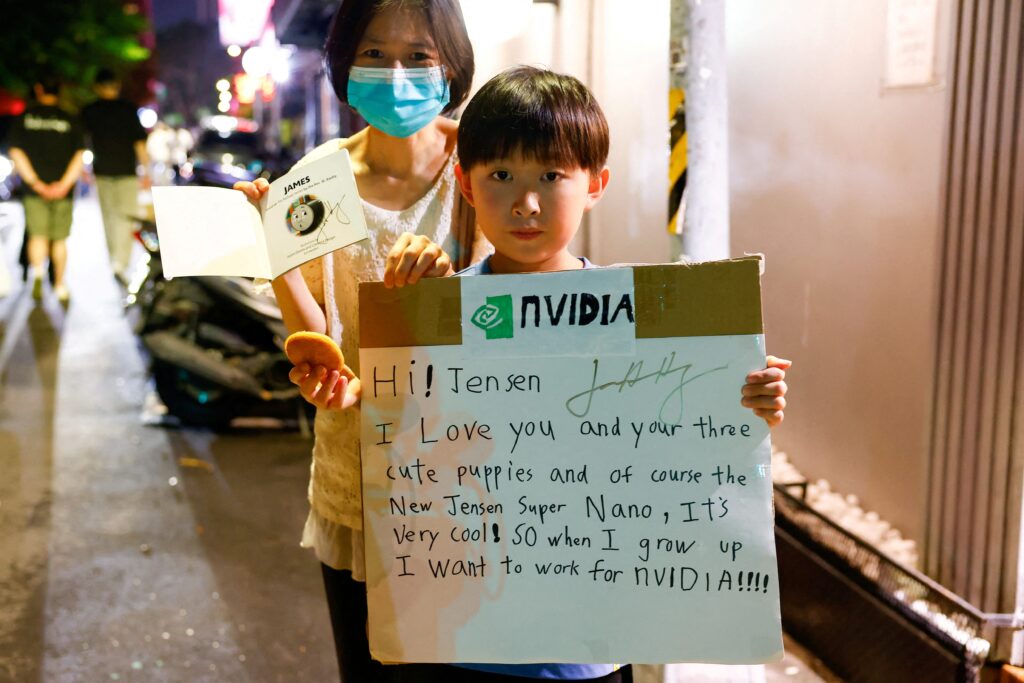 JAMES
nVIDIA
Hi! Jensen
I Love you and your three
cute puppies and of course the
New Jensen Super Nano, It's
Very cool! SO when I grow up
I want to work for nVIDIA!!!!